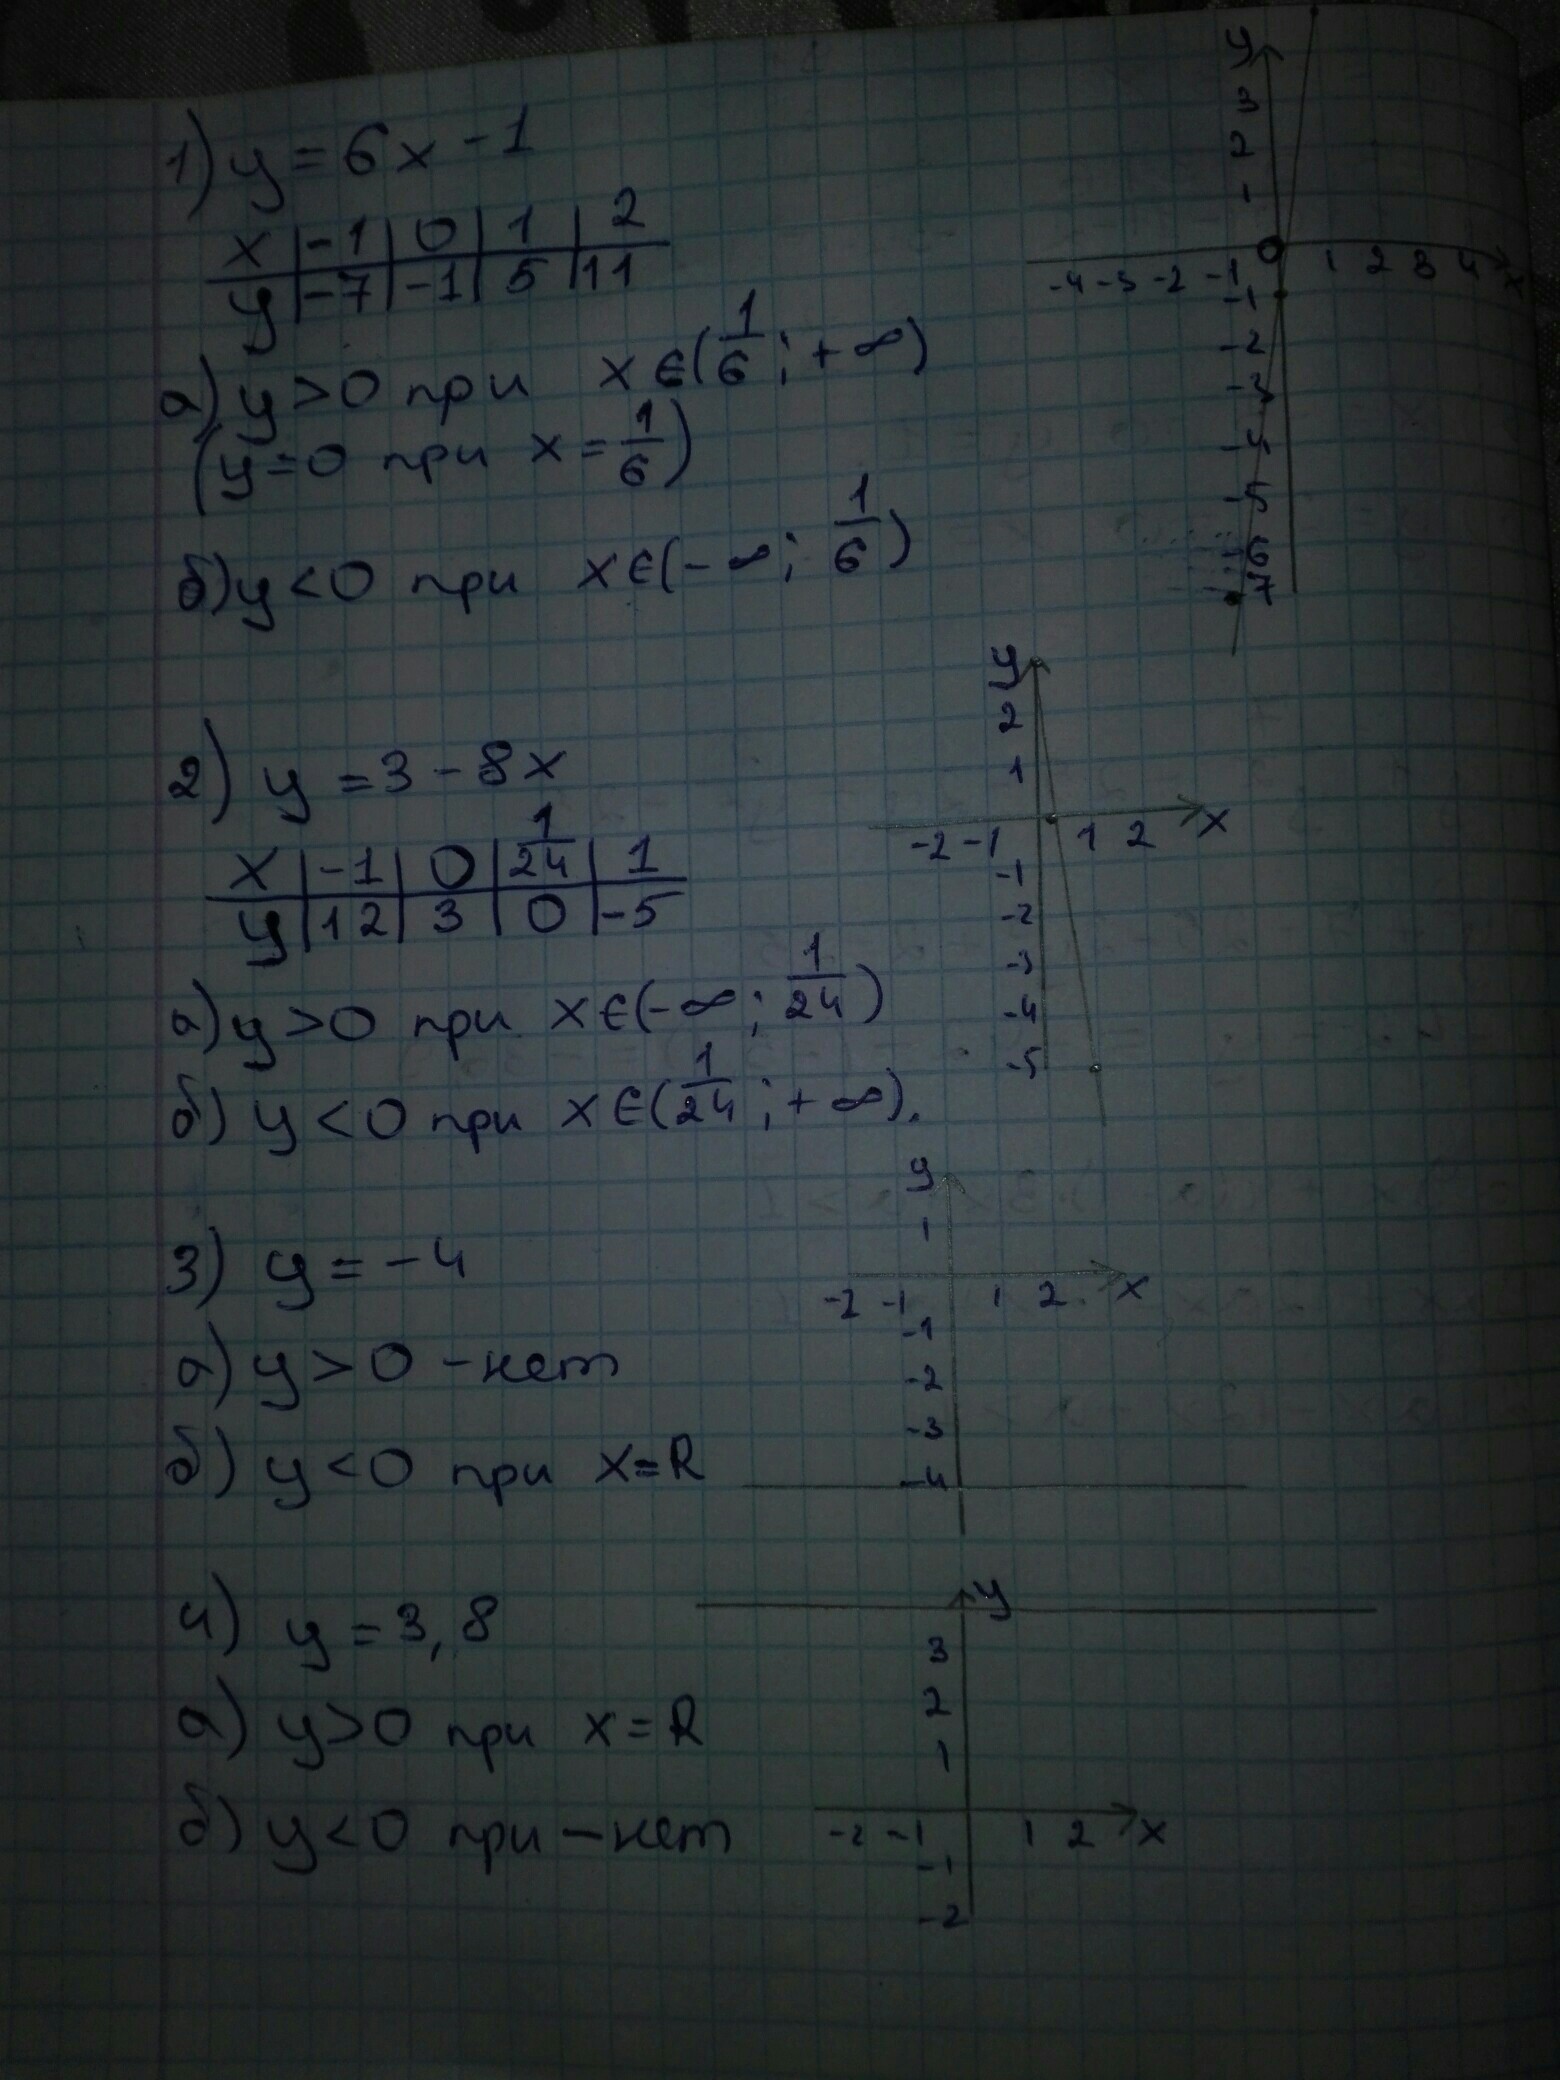 1) y = 6x - 1
x | -1 | 0 | 1 | 2
y | -7 | -1 | 5 | 11
а) y > 0 при x ∈ (1/6; +∞)
(y = 0 при x = 1/6)
б) y < 0 при x ∈ (-∞; 1/6)
y
3
2
1
0
-4 -3 -2 -1 1 2 3 4 x
-1
-2
-3
-4
-5
-6
-7
2) y = 3 - 8x
x | -1 | 0 | 1/24 | 1
y | 12 | 3 | 0 | -5
а) y > 0 при x ∈ (-∞; 1/24)
б) y < 0 при x ∈ (1/24; +∞).
y
2
1
-2 -1 1 2 x
-1
-2
-3
-4
-5
3) y = -4
а) y > 0 - нет
б) y < 0 при x = R
y
1
-2 -1 1 2 x
-1
-2
-3
-4
4) y = 3,8
а) y > 0 при x = R
б) y < 0 при - нет
y
3
2
1
-2 -1 1 2 x
-1
-2